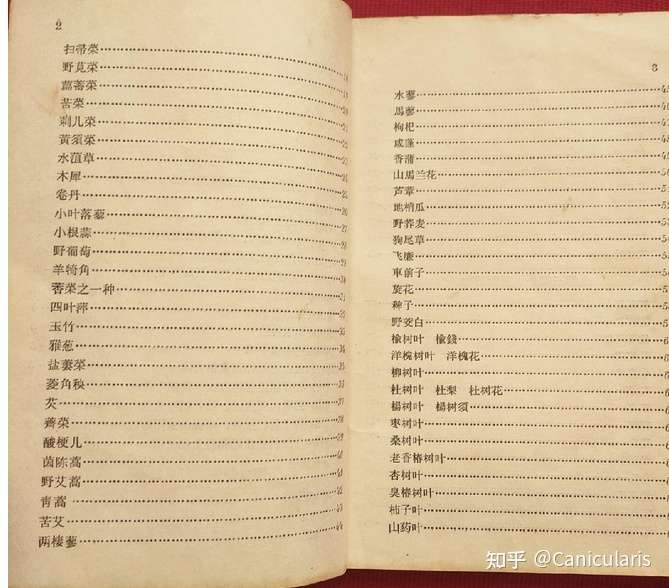 2
扫帚菜
野莧菜
萹蓄菜
苦菜
刺儿菜
黃須菜
水葅草
木犀
卷丹
小叶落藜
小根蒜
野葡萄
羊犄角
莕菜之一种
四叶萍
玉竹
雅葱
盐蓁菜
菱角秧
芡
薺菜
酸梗儿
茵陈蒿
野艾蒿
青蒿
苦艾
两棲蓼
3
水蓼
馬蓼
枸杞
咸蓬
香蒲
山馬兰花
芦葦
地梢瓜
野荞麦
狗尾草
飞廉
車前子
旋花
稗子
野茭白
榆树叶 榆錢
洋槐树叶 洋槐花
柳树叶
杜树叶 杜梨 杜树花
楊树叶 楊树须
枣树叶
桑树叶
老香椿树叶
杏树叶
臭椿树叶
柿子叶
山药叶
知乎 @Canicularis